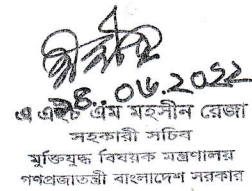 ২৪.০৬.২০২২
এ এইচ এম মহসীন রেজা
সহকারী সচিব
মুক্তিযুদ্ধ বিষয়ক মন্ত্রণালয়
গণপ্রজাতন্ত্রী বাংলাদেশ সরকার